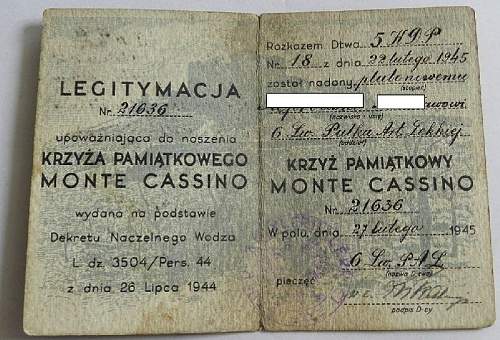 LEGITYMACJA
Nr. 21636
upoważniająca do noszenia
KRZYŻA PAMIĄTKOWEGO
MONTE CASSINO
wydana na podstawie
Dekretu Naczelnego Wodza
L. dz. 3504/Pers. 44
z dnia 26 Lipca 1944
Rozkazem Dtwa 5 KDP
Nr. 18 z dnia 22 lutego 1945
został nadany plutonowemu
(stopień)
(nazwisko i imię)
6. Lw. Pułku Art. Lekkiej
(oddział)
KRZYŻ PAMIĄTKOWY
MONTE CASSINO
Nr. 21636
W polu, dnia 27 lutego 1945
6 Lw. P.A.L.
(nazwa D-twa)
pieczęć
podpis D-cy